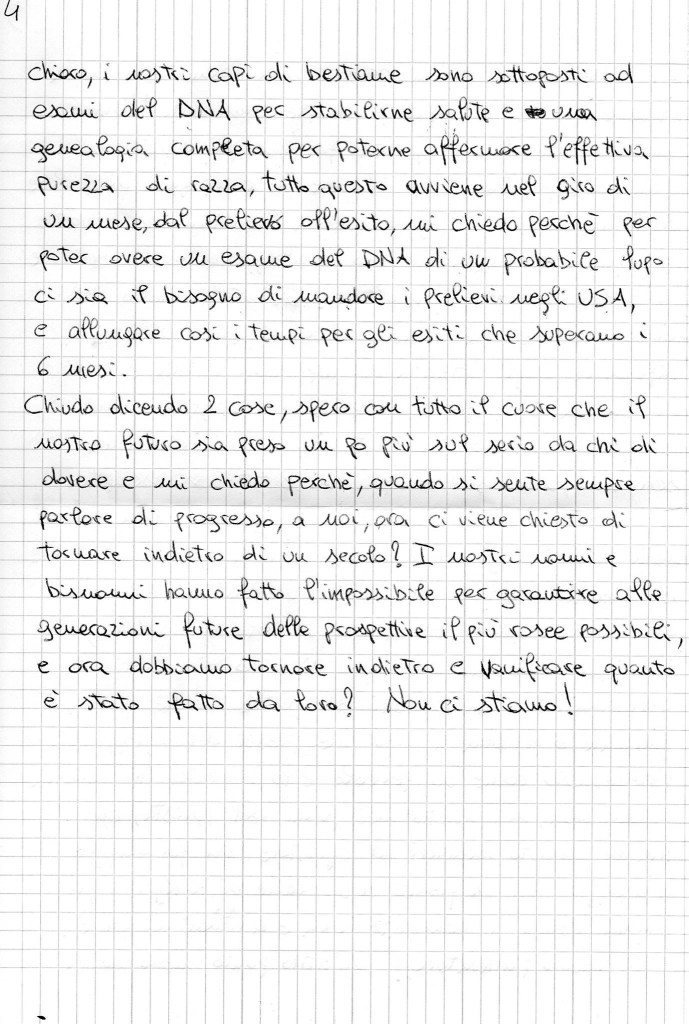 4
chiaro, i nostri capi di bestiame sono sottoposti ad
esami del DNA per stabilirne salute e una
genealogia completa per poterne affermare l'effettiva
purezza di razza, tutto questo avviene nel giro di
un mese, dal prelievo all'esito, mi chiedo perchè per
poter avere un esame del DNA di un probabile lupo
ci sia il bisogno di mandare i prelievi negli USA,
e allungare così i tempi per gli esiti che superano i
6 mesi.
Chiudo dicendo 2 cose, spero con tutto il cuore che il
nostro futuro sia preso un po più sul serio da chi di
dovere e mi chiedo perchè, quando si sente sempre
parlare di progresso, a noi, ora ci viene chiesto di
tornare indietro di un secolo? I nostri nonni e
bisnonni hanno fatto l'impossibile per garantire alle
generazioni future delle prospettive il più rosee possibili,
e ora dobbiamo tornare indietro e vanificare quanto
è stato fatto da loro? Non ci stiamo!